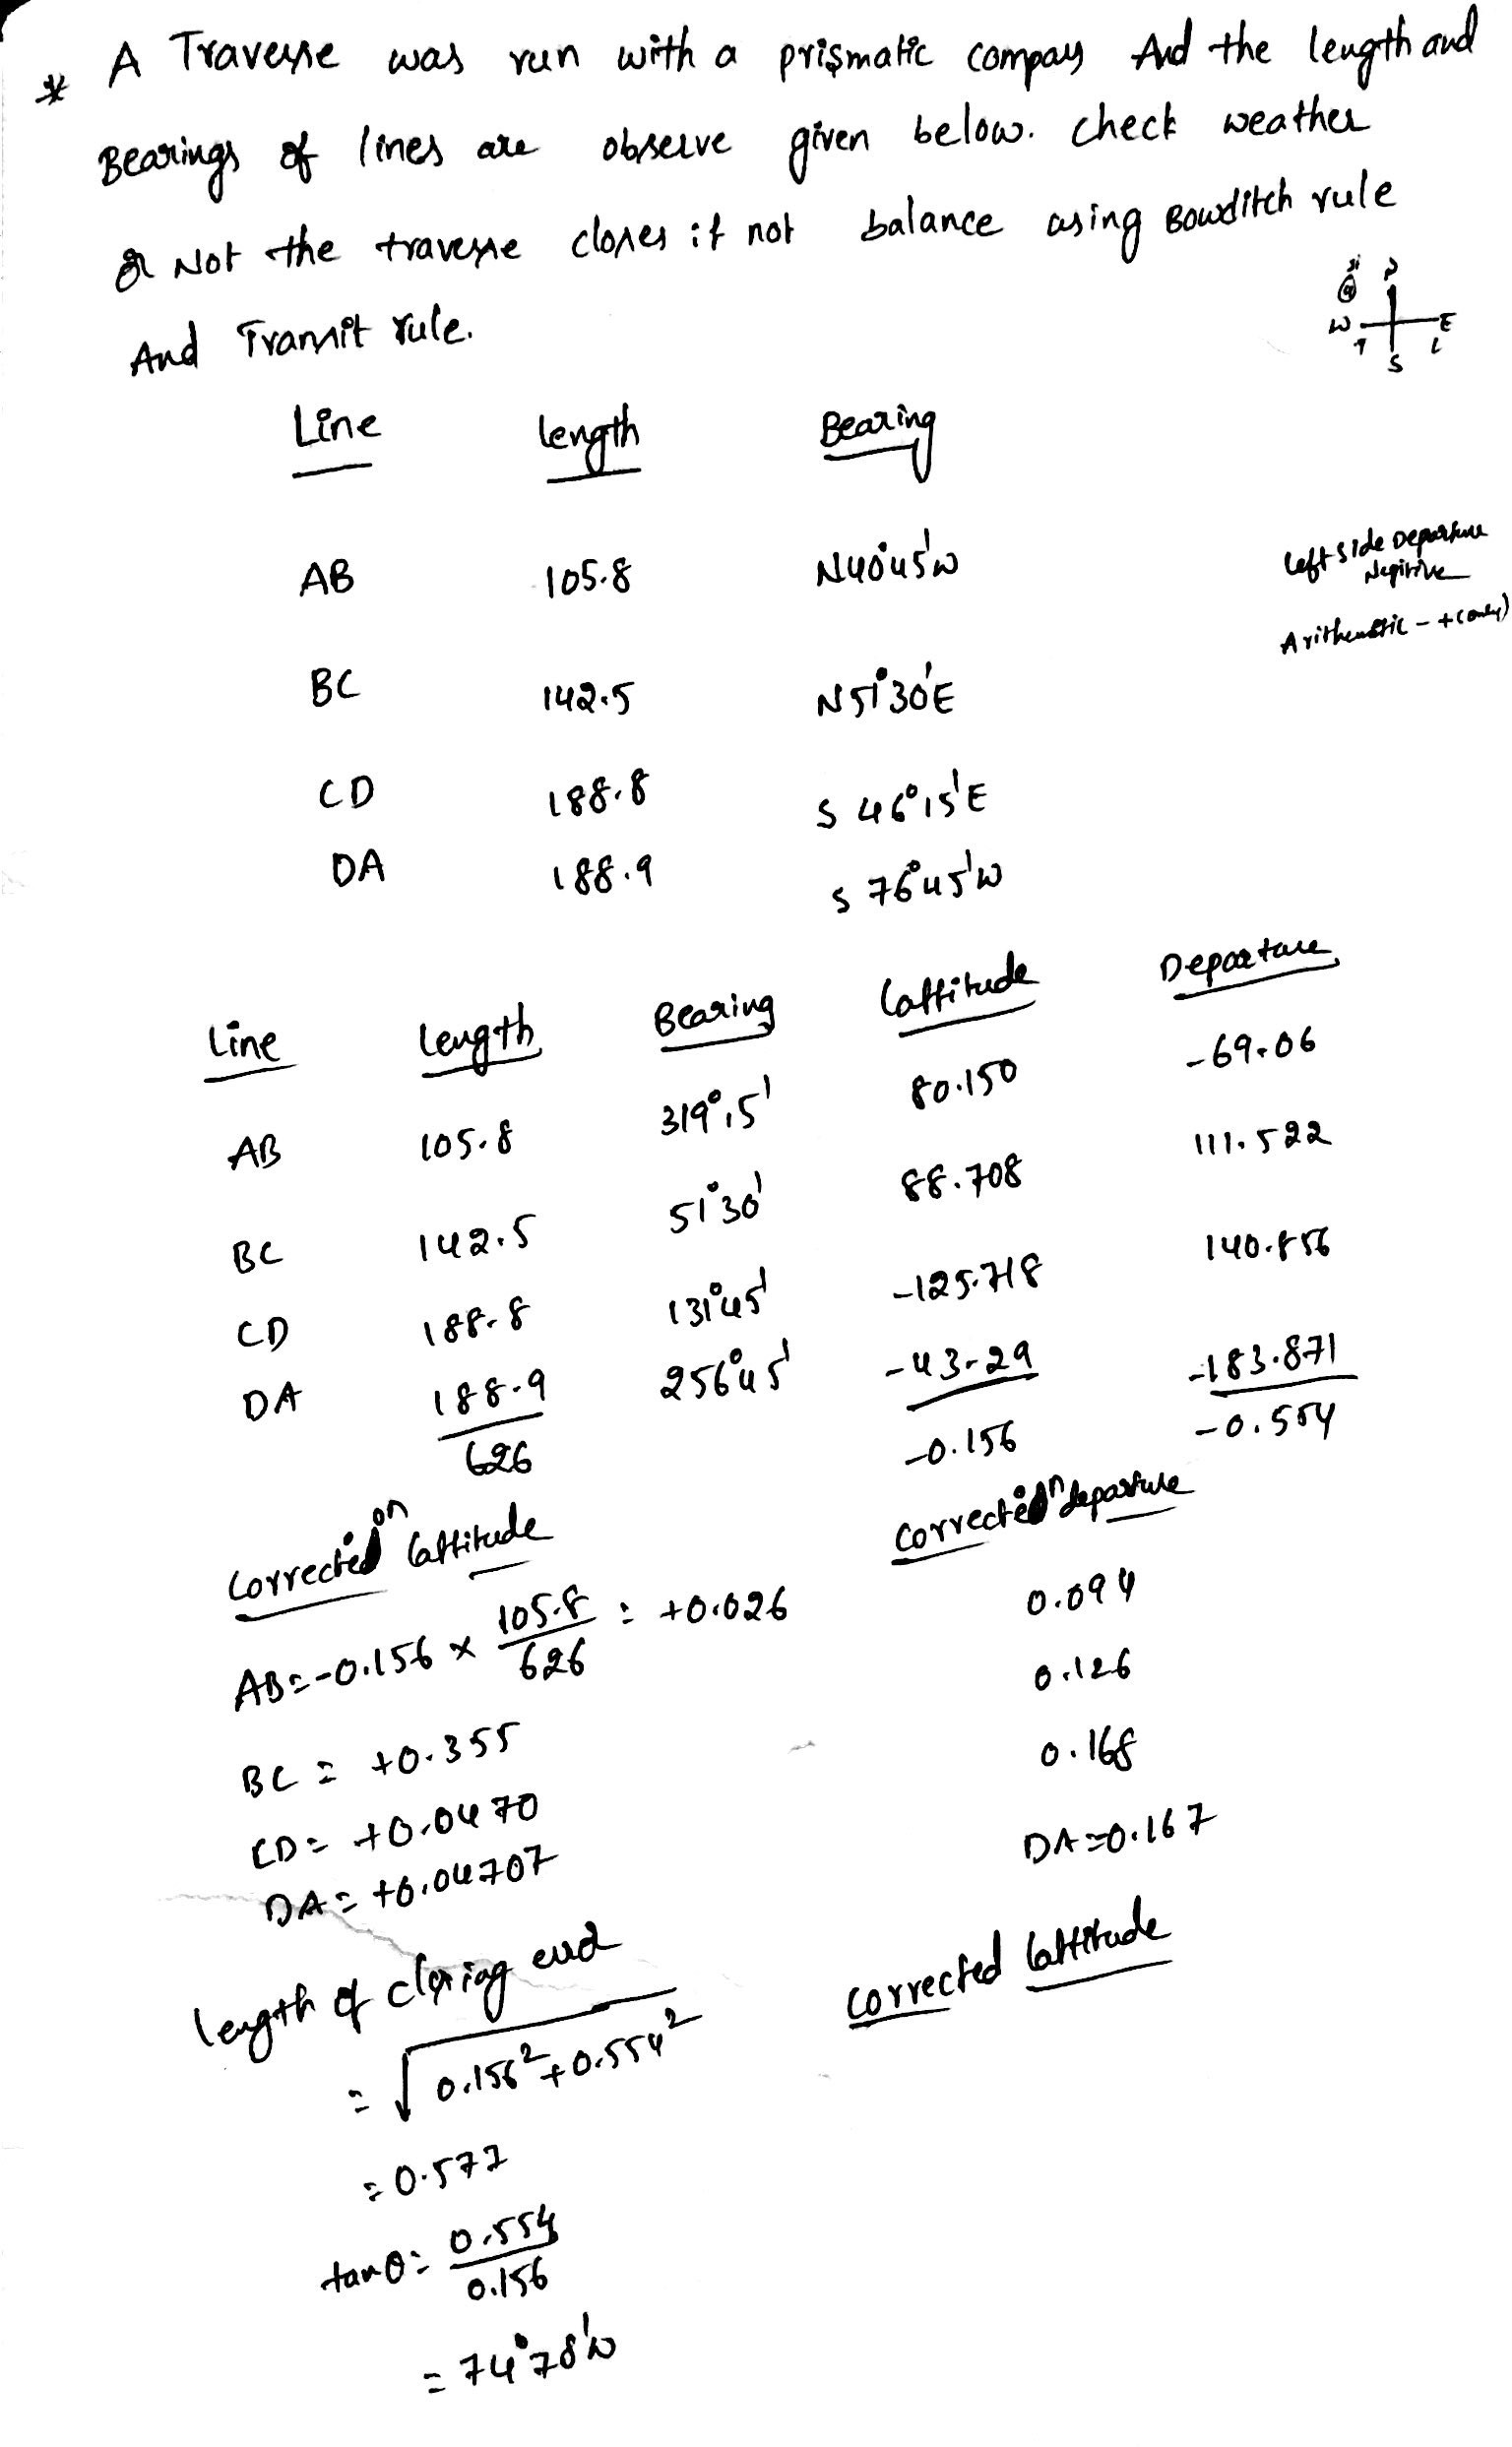 * A Traverse was run with a prismatic compass And the length and
Bearings of lines are observe given below. check weather
or Not the traverse closes if not balance using Bowditch rule
And Transit rule.
W E
S
Line length Bearing
AB 105.8 N40°45'W
BC 142.5 N51°30'E
CD 188.8 S 46°15'E
DA 188.9 S 76°45'W
left side Departure
Negitive
Arithemetic - + (only)
Line Length Bearing Lattitude Departure
AB 105.8 319°15' 80.150 -69.06
BC 142.5 51°30' 88.708 111.522
CD 188.8 131°45' -125.718 140.856
DA 188.9 256°45' -43.29 -183.871
626 -0.156 -0.554
Correction Lattitude Correction departure
AB = -0.156 x 105.8/626 = +0.026 0.094
BC = +0.355 0.126
CD = +0.0470 0.168
DA = +0.04707 DA = 0.167
length of closing end
corrected lattitude
= √0.156² + 0.554²
= 0.577
tanθ = 0.554/0.156
= 74°78'W